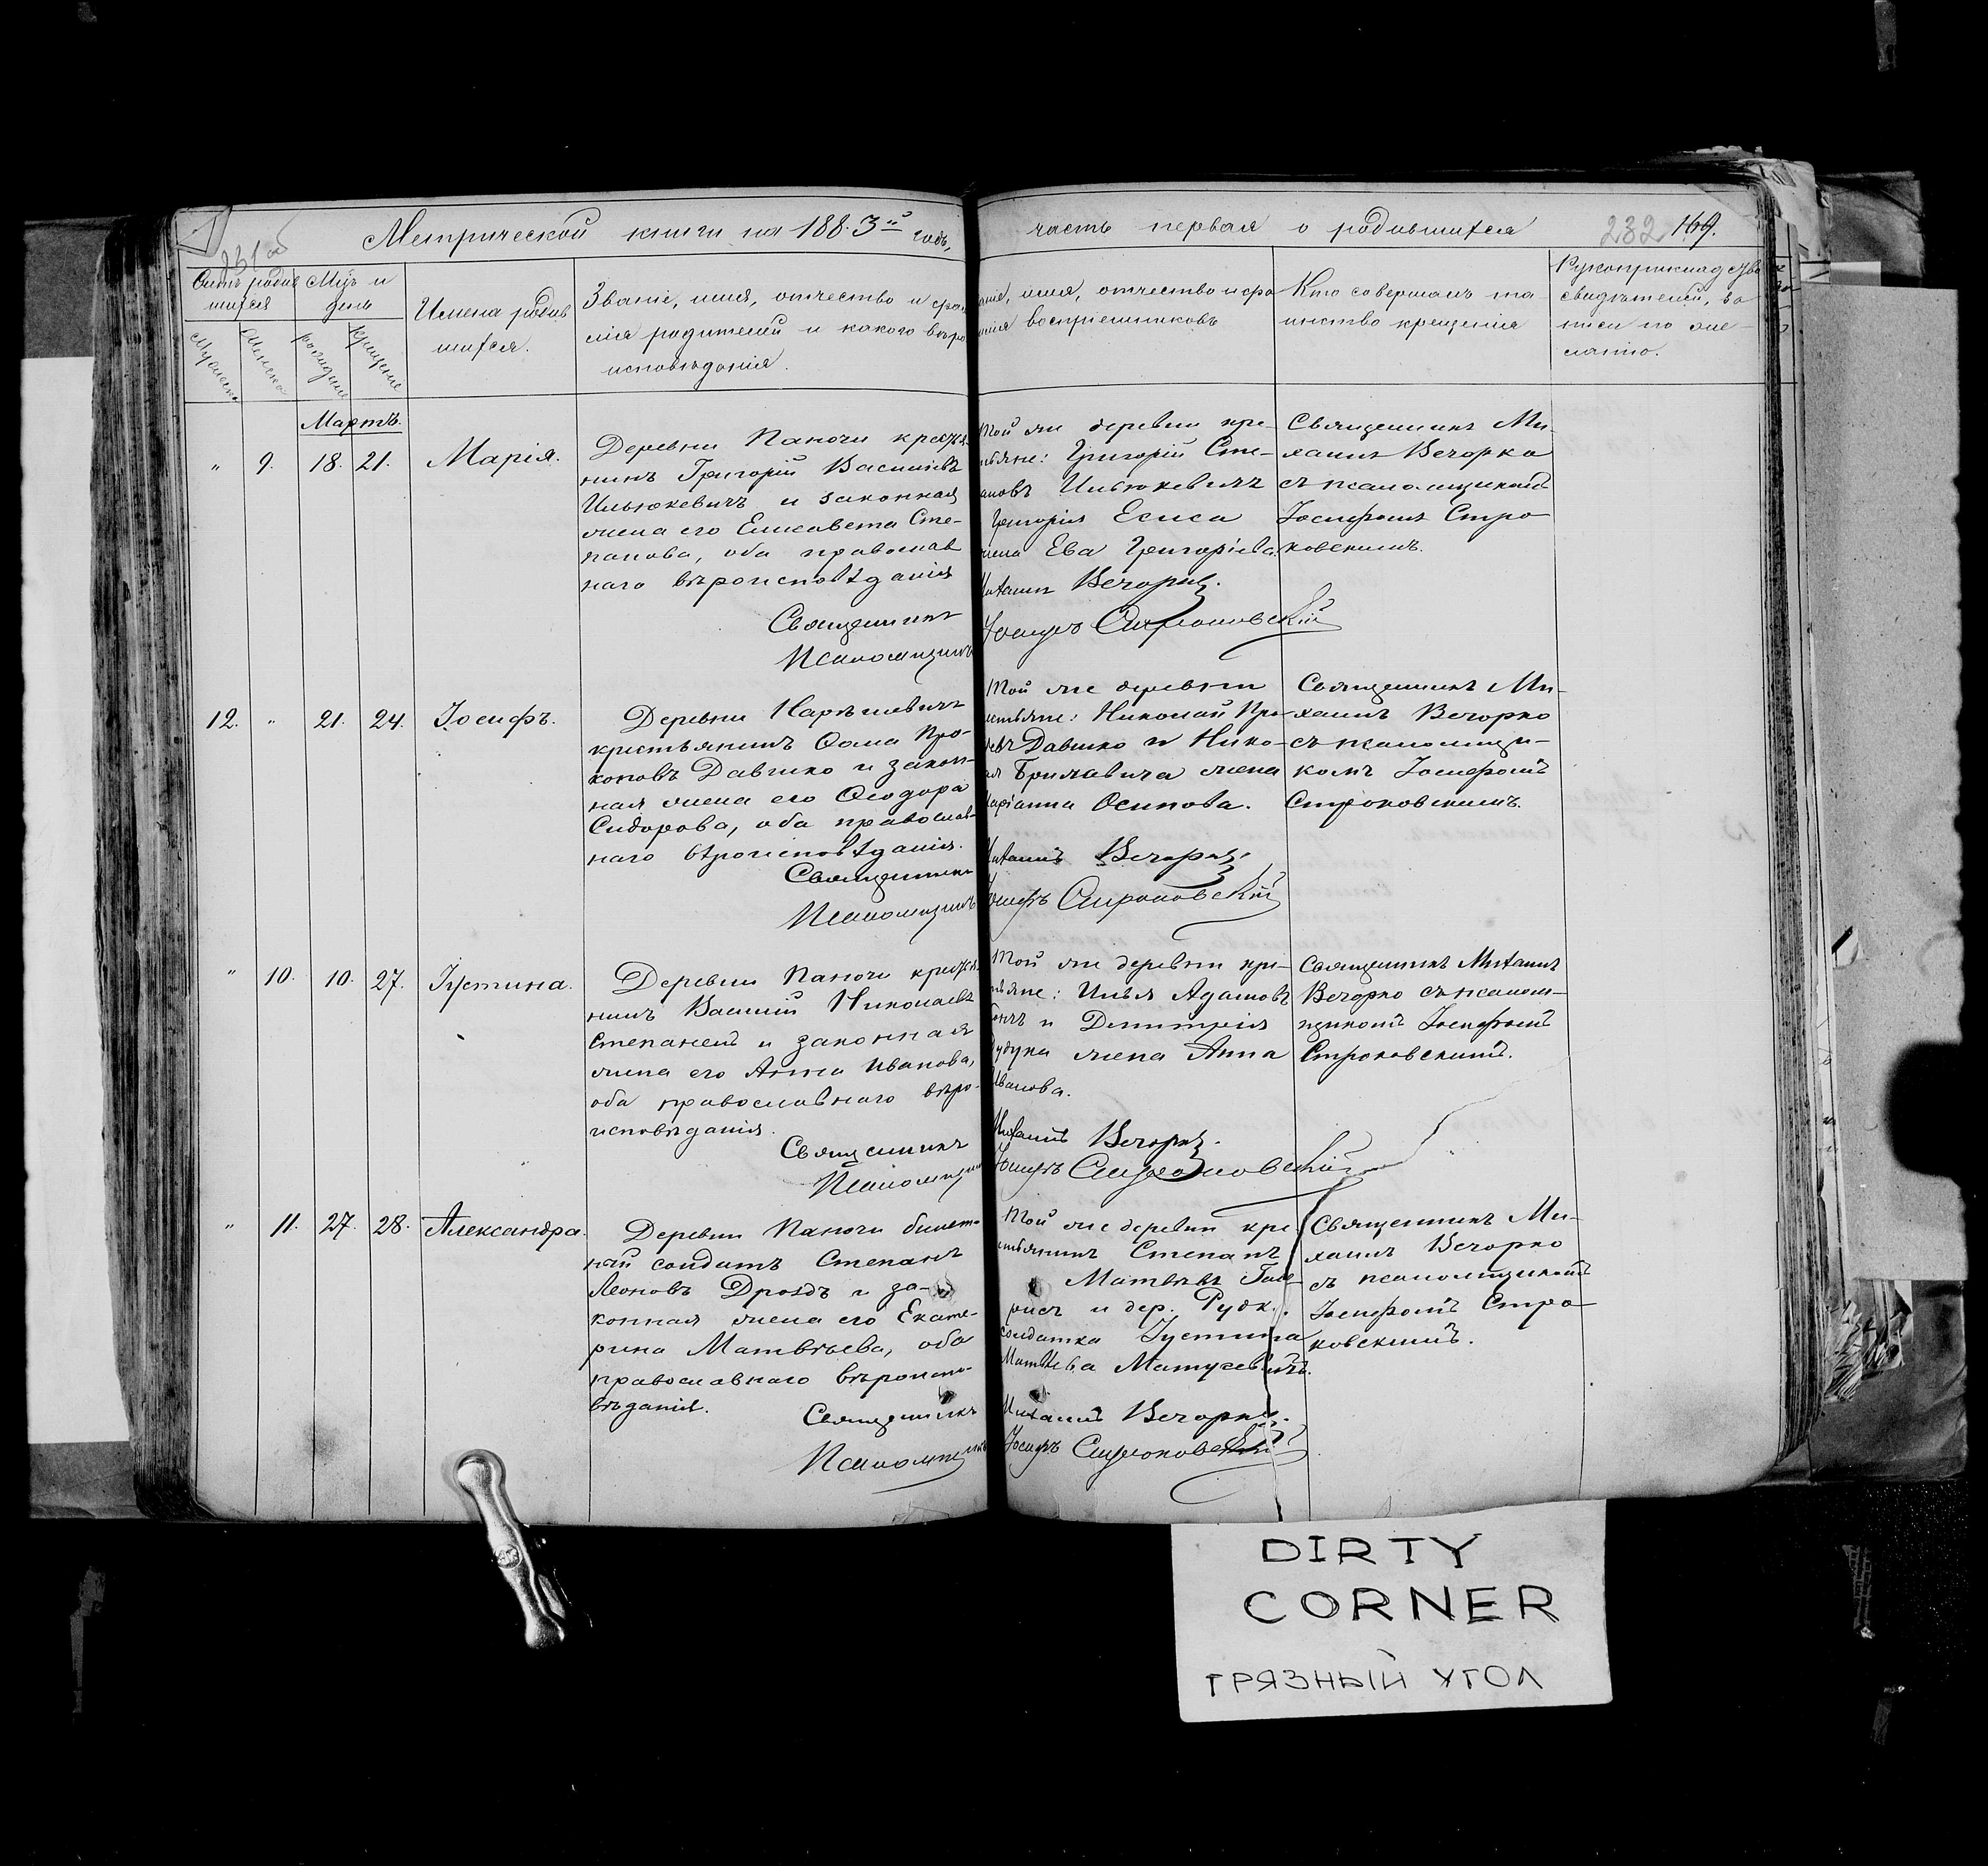 Метрической книги на 1883ій годъ,
часть первая о родившихся
232 169.
Счетъ родив
шихся
Мужеска
Женска
Мѣс. и
день
рожденія
крещенія
Имена родив
шихся.
Званіе, имя, отчество и фами
лія родителей и какого вѣро
исповѣданія.
аніе, имя, отчество и фа
милія воспріемниковъ
Кто совершалъ та
инство крещенія
Рукоприкладство
свидѣтелей, за
писи по же
ланію.
Мартъ.
" 9. 18. 21. Марія.
Деревни Панючи крестья
нинъ Григорій Васильевъ
Ильюкевичъ и законная
жена его Елисавета Сте-
панова, оба православ
наго вѣроисповѣданія
Священникъ
Псаломщикъ
Той же деревни кре-
стьяне: Григорій Сте-
пановъ Ильюкевичъ
Григорія Есиса
жена Ева Григорьева.
Михаилъ Вечорко.
Іосифъ Строковскій
Священникъ Ми-
хаилъ Вечорко
съ псаломщикомъ
Іосифомъ Стро
ковскимъ.
12. " 21. 24. Іосифъ.
Деревни
крестьянинъ Ѳома Про-
коповъ Давлико и закон-
ная жена его Ѳеодора
Сидорова, оба православ-
наго вѣроисповѣданія.
Священникъ
Псаломщикъ
Той же деревни
крестьяне: Николай Про-
Давлико и Нико-
лая жена
Маріанна Осипова.
Михаилъ Вечорко
Іосифъ Строковскій
Священникъ Ми-
хаилъ Вечорко
съ псаломщи-
комъ Іосифомъ
Строковскимъ.
" 10. 10. 27. Іустина.
Деревни Панючи крестья
нинъ Василій Николаевъ
Степанецъ и законная
жена его Анна Иванова,
оба православнаго вѣро-
исповѣданія.
Священникъ
Псаломщикъ
Той же деревни кре-
стьяне: Илья Адамовъ
и Димитрія
жена Анна
Иванова.
Михаилъ Вечорко.
Іосифъ Строковскій
Священникъ Михаилъ
Вечорко съ псалом-
щикомъ Іосифомъ
Строковскимъ.
" 11. 27. 28. Александра.
Деревни Панючи билет-
ный солдатъ Степанъ
Леоновъ Дроздъ и за-
конная жена его Екате-
рина Матвѣева, оба
православнаго вѣроиспо-
вѣданія.
Священникъ
Псаломщикъ
Той же деревни кре
стьянинъ Степанъ
Матвѣевъ
и дер.
солдатка Іустина
Матвѣева Матусевичъ.
Михаилъ Вечорко.
Іосифъ Строковскій
Священникъ Ми-
хаилъ Вечорко
съ псаломщикомъ
Іосифомъ Стро
ковскимъ.
DIRTY
CORNER
ГРЯЗНЫЙ УГОЛ